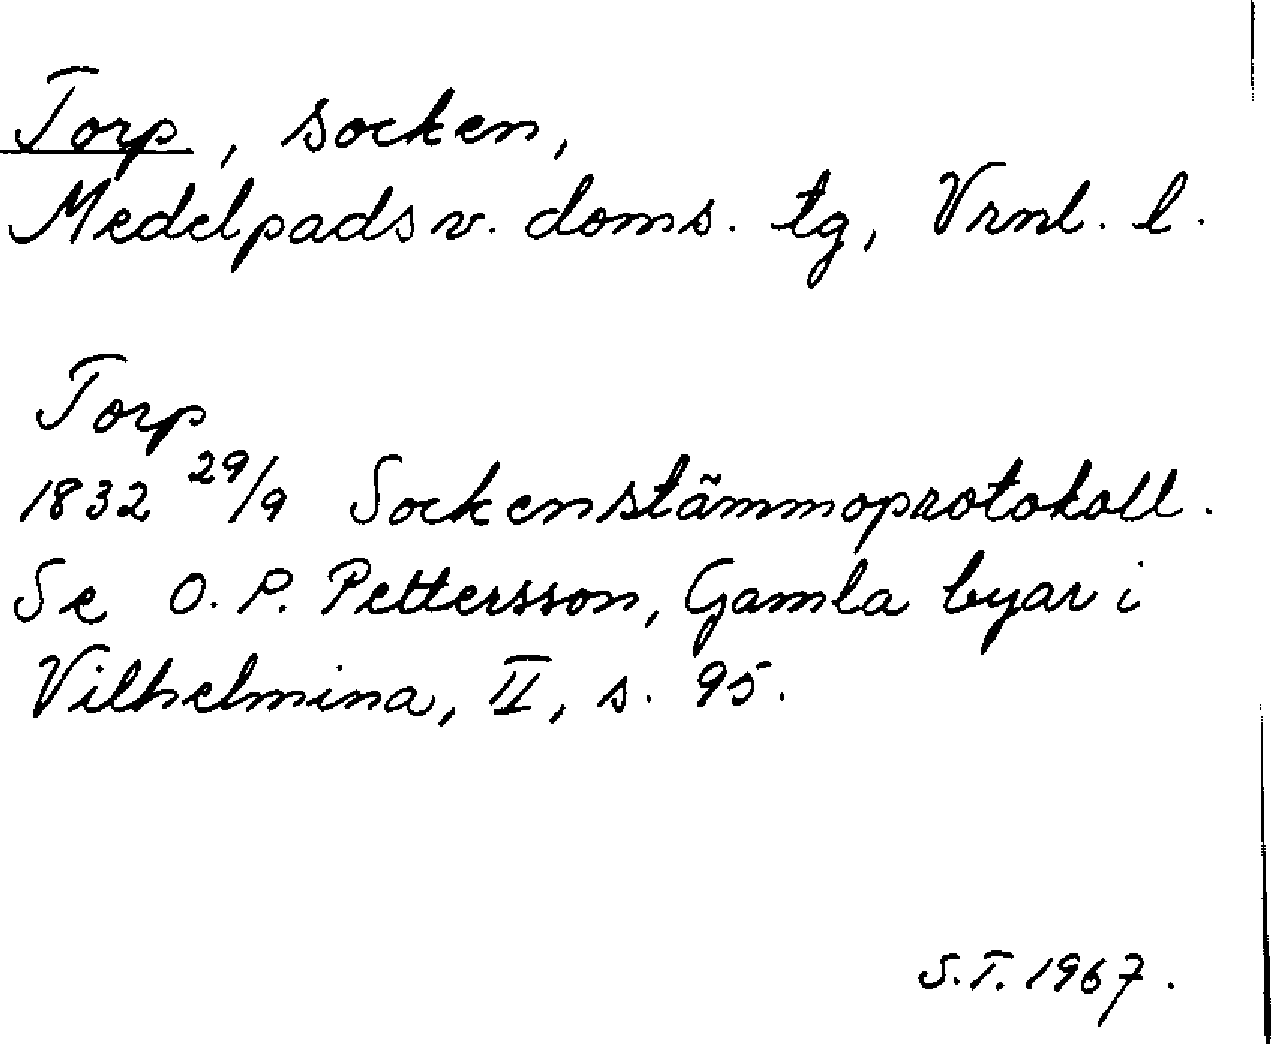 Torp, socken,
Medelpads v. doms. tg, Vrnl. l.
Torp
1832 29/9 Sockenstämmoprotokoll.
Se O. P. Pettersson, Gamla byar i
Vilhelmina, II, s. 95.
S.T. 1967.